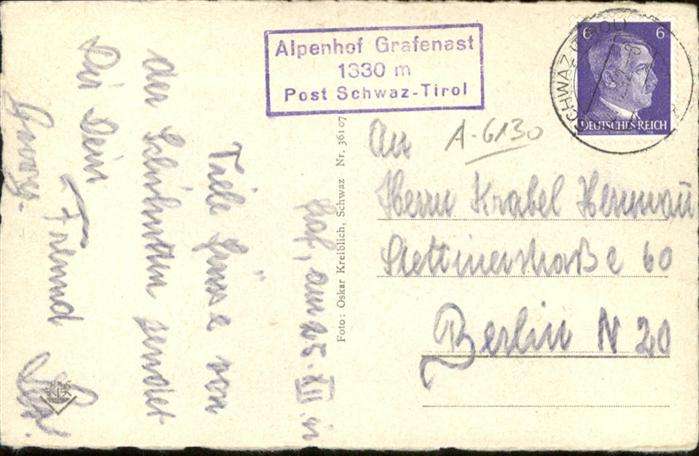 Alpenhof Grafenast
1330 m
Post Schwaz-Tirol
6 6
DEUTSCHES REICH
SCHWAZ
A-6130
An
Herrn Krabel Hermann
Stettinerstraße 60
Berlin N 20
Foto: Oskar Kreiblich, Schwaz Nr. 36107
am 25. XII
Viele Grüsse von
der Skihütten sendet
Dir Dein
Freund
Georg.